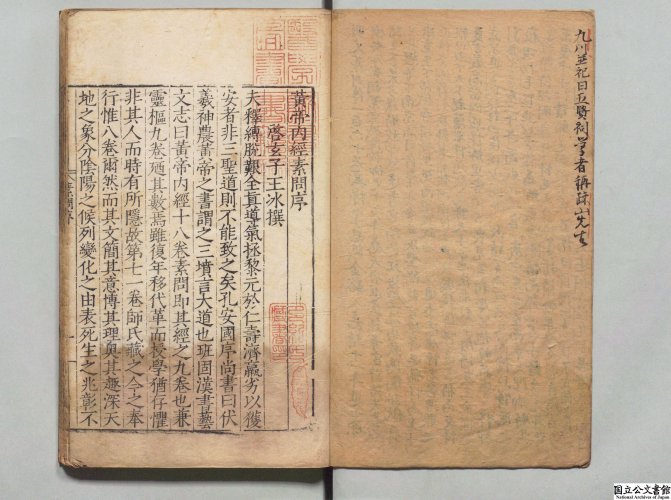 九川並祀曰五賢祠學者稱
先生
黃帝内經素問序
啓玄子王冰撰
夫釋縛脫艱全眞導氣拯黎元於仁壽濟羸劣以獲
安者非三聖道則不能致之矣孔安國序尚書曰伏
羲神農黃帝之書謂之三墳言大道也班固漢書藝
文志曰黃帝内經十八卷素問即其經之九卷也兼
靈樞九卷廼其數焉雖復年移代革而授學猶存懼
非其人而時有所隱故第七一卷師氏藏之今之奉
行惟八卷爾然而其文簡其意博其理奧其趣深天
地之象分陰陽之候列變化之由表死生之兆彰不
國立公文書館
National Archives of Japan